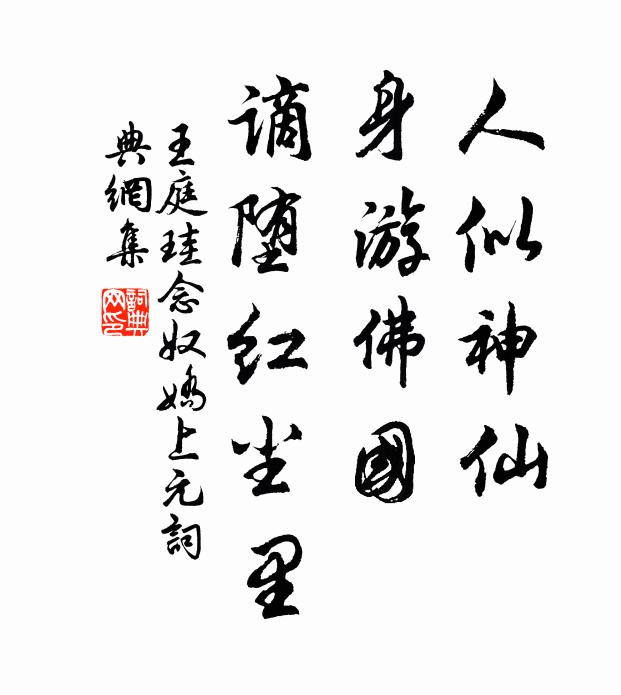 人似神仙
身游佛國
谪堕红尘里
王庭珪念奴嬌上元詞
典網集
詞典網印